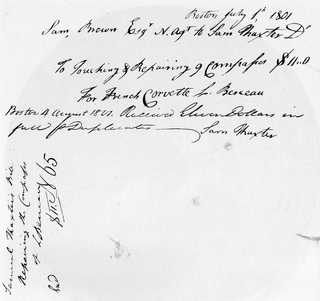 Boston July 1st 1801
Sam Brown Esqr N. Agt to Sam Thaxter Dr
To Touching & Repairing 9 Compasses $11.0
For French Corvette L. Berceau
Boston 4 August 1801. Received Eleven Dollars in
full Duplicates Sam Thaxter
Samuel Thaxter's
Repairing the Compasses
of L. Berceau
$11
65